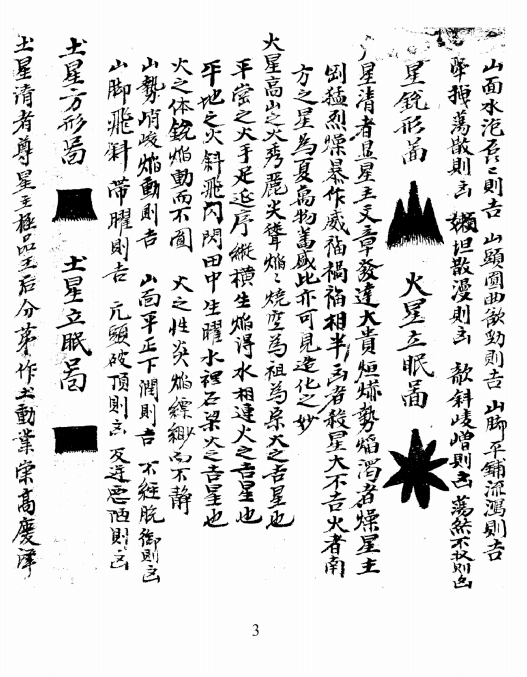 山面水泡吞〻則吉　山顯圓曲欹動則吉　山脚平鋪流瀉則吉
蕩散則凶　懶坦散漫則凶　欹斜崚嶒則凶　蕩然不收則凶
星銳形啚　火星立眠啚
星清者显星主文章發達大貴烜爀勢焰濁者燥星主
剛猛烈燥暴作威福禍福相半凶者殺星大不吉火者南
方之星為夏萬物蕃盛此亦可見造化之妙
火星高山之火秀麗尖聳焰〻燒空為祖為宗火之吉星也
平崗之火手足延序縱橫生焰得水相連火之吉星也
平地之火斜飛閃閃田中生曜水裡石梁火之吉星也
火之体銳焰動而不圓　火之性炎焰縹緲而不靜
山勢峭峻焰動則吉　山高平正下潤則吉　不經脱卸則凶
山脚飛斜帶曜則吉　元頭破頂則凶　反逆惡陋則凶
土星方形啚　土星立眠啚
土星清者尊星主極品王后分茅作土動業崇高慶澤
3